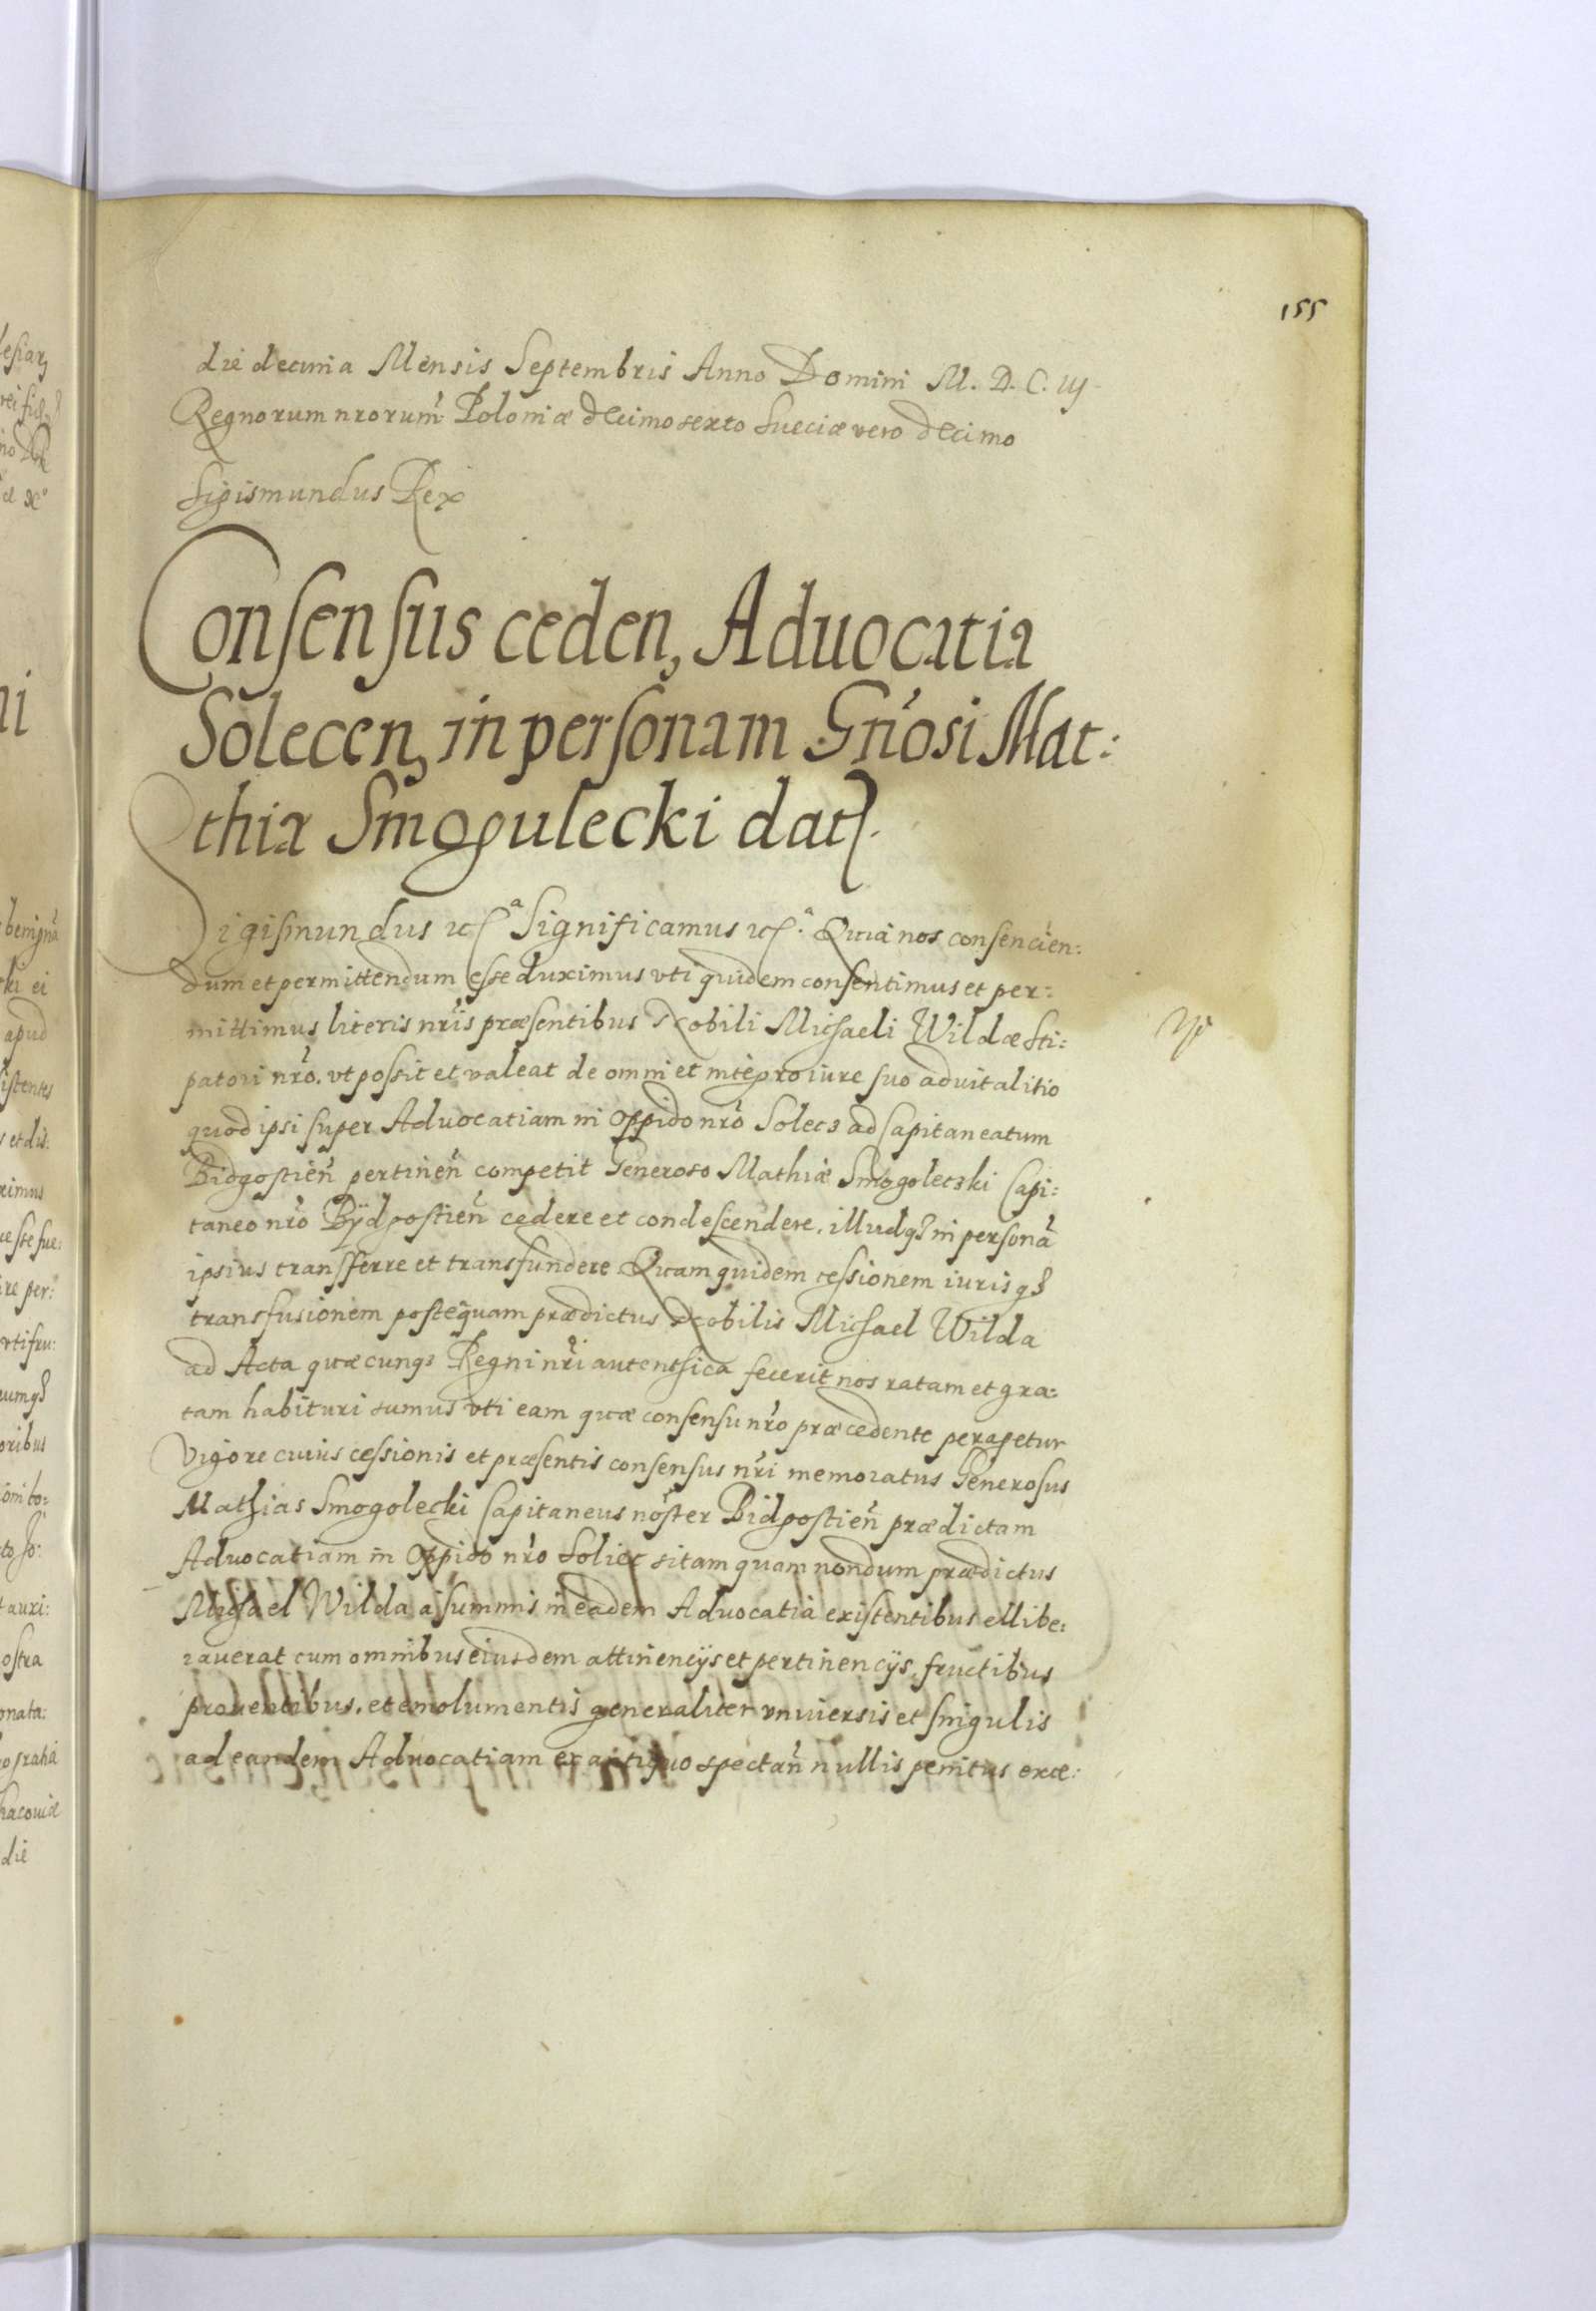 155
die decima Mensis Septembris Anno Domini M. D. C. iij
Regnorum nrorum Poloniæ decimosexto Sueciæ vero decimo
Sigismundus Rex
Consensus ceden, Aduocatia
Solecen, in personam Gnosi Mat:
thiæ Smogulecki dat
Sigismundus Significamus Quia nos consencien:
dum et permittendum esse duximus vti quidem consentimus et per:
mittimus literis nris præsentibus Nobili Michaeli Wildæ Sti:
patori nro. vt possit et valeat de omni et integro iure suo aduitalitio
quod ipsi super Aduocatiam in oppido nro Solecz ad Capitaneatum
Bidgostien pertinen competit Generoso Mathiæ Smogoleczki Capi:
taneo nro Bÿdgostien cedere et condescendere. illudq in personā
ipsius transferre et transfundere Quam quidem cessionem iurisq
transfusionem posteāquam prædictus Nobilis Michael Wilda
ad Acta quæcunqz Regni nri autenthica fecerit nos ratam et gra:
tam habituri sumus vti eam quæ consensu nro præcedente peragetur
Vigore cuius cessionis et præsentis consensus nri memoratus Generosus
Mathias Smogolecki Capitaneus noster Bidgostien prædictam
Aduocatiam in Oppido nro Soliec sitam quam nondum prædictus
Michael Wilda a summis in eadem Aduocatia existentibus ellibe:
rauerat cum omnibus eiusdem attinencijs et pertinencijs. fructibus
prouentibus. et emolumentis generaliter vniuersis et singulis
ad eandem Aduocatiam ex antiquo spectan nullis penitus exce: